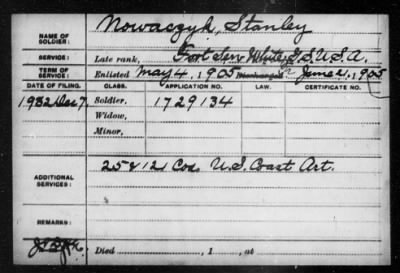 NAME OF SOLDIER: Nowaczyk, Stanley
SERVICE: Late rank, Fort Slem White, G. S. U.S.A.
TERM OF SERVICE: Enlisted May 4, 1905 Discharged June 21, 1905
DATE OF FILING. CLASS. APPLICATION NO. LAW. CERTIFICATE NO.
1932 Dec 7. Soldier, 1729134
Widow,
Minor,
ADDITIONAL SERVICES: 25 & 121 Cos. U.S. Coast Art.
REMARKS:
Died , 1 , at